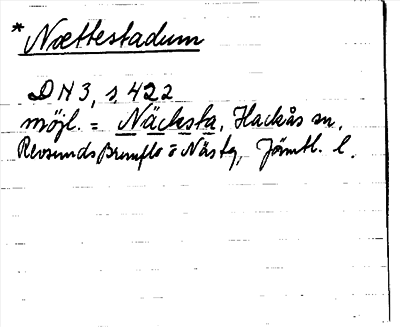 * Nættestadum
DN 3, s. 422
möjl. = Näcksta, Hackås sn,
Revsunds Brunflo = Nästa, Jämtl. l.